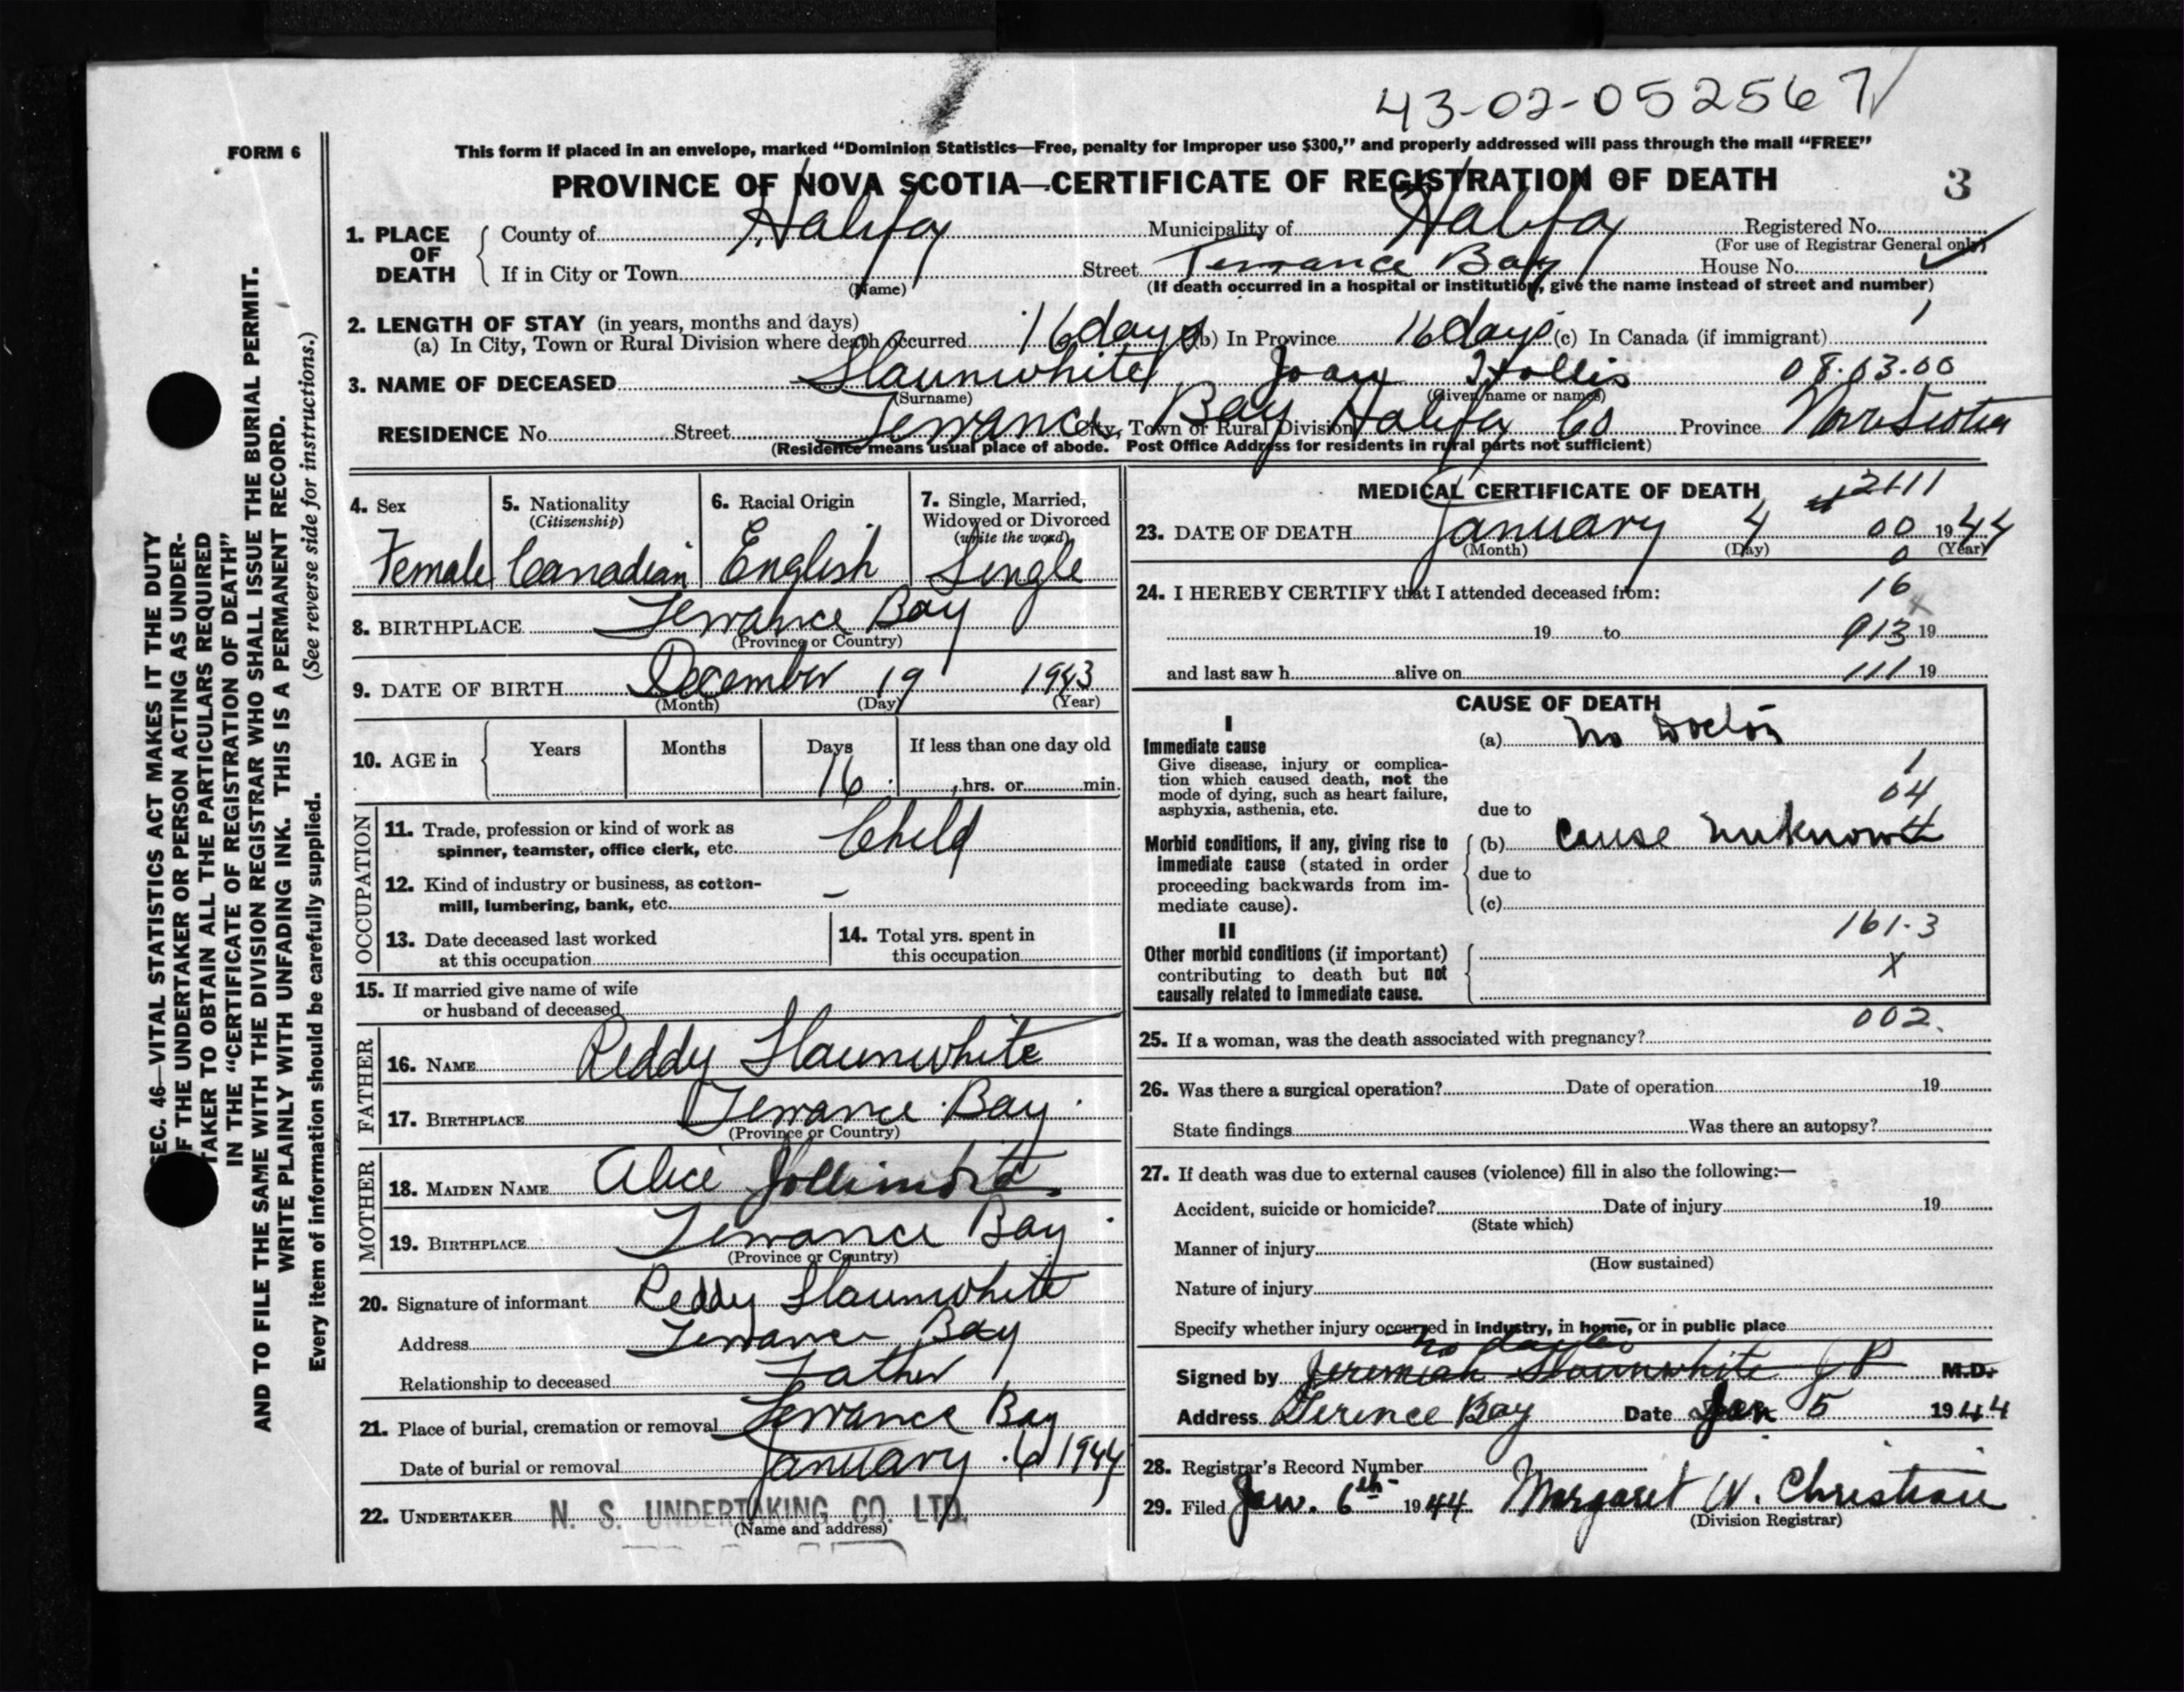 43-02-052567 ✓
FORM 6
This form if placed in an envelope, marked “Dominion Statistics—Free, penalty for improper use $300,” and properly addressed will pass through the mail “FREE”
PROVINCE OF NOVA SCOTIA—CERTIFICATE OF REGISTRATION OF DEATH 3
1. PLACE OF DEATH County of Halifax Municipality of Halifax Registered No.
(For use of Registrar General only)
If in City or Town Street Terrance Bay House No. ✓
(Name) (If death occurred in a hospital or institution, give the name instead of street and number)
2. LENGTH OF STAY (in years, months and days)
(a) In City, Town or Rural Division where death occurred 16 days (b) In Province 16 days (c) In Canada (if immigrant) 1
3. NAME OF DECEASED Slaunwhite Joan Hollis 08.03.00
(Surname) (Given name or names)
RESIDENCE No. Street Terrance Bay City, Town or Rural Division Halifax Co Province Nova Scotia
(Residence means usual place of abode. Post Office Address for residents in rural parts not sufficient)
4. Sex Female
5. Nationality (Citizenship) Canadian
6. Racial Origin English
7. Single, Married, Widowed or Divorced (write the word) Single
8. BIRTHPLACE Terrance Bay
(Province or Country)
9. DATE OF BIRTH December 19 1943
(Month) (Day) (Year)
10. AGE in Years Months Days If less than one day old
16 hrs. or min.
OCCUPATION
11. Trade, profession or kind of work as
spinner, teamster, office clerk, etc. Child
12. Kind of industry or business, as cotton-
mill, lumbering, bank, etc. –
13. Date deceased last worked
at this occupation
14. Total yrs. spent in
this occupation
15. If married give name of wife
or husband of deceased
FATHER
16. NAME Reddy Slaunwhite
17. BIRTHPLACE Terrance Bay
(Province or Country)
MOTHER
18. MAIDEN NAME Alice Jollimore
19. BIRTHPLACE Terrance Bay
(Province or Country)
20. Signature of informant Reddy Slaunwhite
Address Terrance Bay
Relationship to deceased Father
21. Place of burial, cremation or removal Terrance Bay
Date of burial or removal January 6 1944
22. UNDERTAKER N. S. UNDERTAKING CO. LTD.
(Name and address)
MEDICAL CERTIFICATE OF DEATH 2111
23. DATE OF DEATH January 4 00 1944
(Month) (Day) (Year)
0
24. I HEREBY CERTIFY that I attended deceased from: 16
19 to 913 19
and last saw h alive on 111 19
CAUSE OF DEATH
I
Immediate cause (a) No Doctor
Give disease, injury or complica-
tion which caused death, not the
mode of dying, such as heart failure,
asphyxia, asthenia, etc. due to
1
04
4
Morbid conditions, if any, giving rise to (b) Cause unknown
immediate cause (stated in order due to
proceeding backwards from im-
mediate cause). (c)
161.3
II
Other morbid conditions (if important) X
contributing to death but not
causally related to immediate cause.
002.
25. If a woman, was the death associated with pregnancy?
26. Was there a surgical operation? Date of operation 19
State findings Was there an autopsy?
27. If death was due to external causes (violence) fill in also the following:—
Accident, suicide or homicide? Date of injury 19
(State which)
Manner of injury
(How sustained)
Nature of injury
Specify whether injury occurred in industry, in home, or in public place
no doctor
Signed by Jeremiah Slaunwhite J P M.D.
Address Terence Bay Date Jan 5 1944
28. Registrar's Record Number
29. Filed Jan. 6th 1944 Margaret W. Christian
(Division Registrar)
SEC. 46—VITAL STATISTICS ACT MAKES IT THE DUTY
OF THE UNDERTAKER OR PERSON ACTING AS UNDER-
TAKER TO OBTAIN ALL THE PARTICULARS REQUIRED
IN THE “CERTIFICATE OF REGISTRATION OF DEATH”
AND TO FILE THE SAME WITH THE DIVISION REGISTRAR WHO SHALL ISSUE THE BURIAL PERMIT.
WRITE PLAINLY WITH UNFADING INK. THIS IS A PERMANENT RECORD.
Every item of information should be carefully supplied. (See reverse side for instructions.)